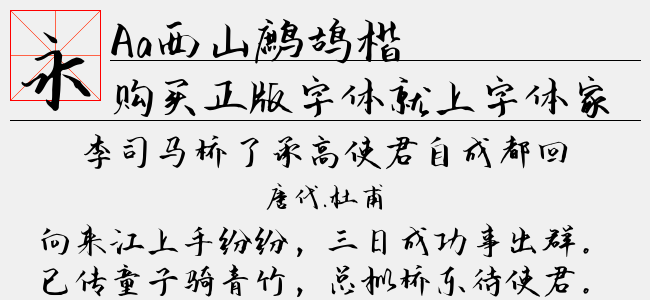 永
Aa西山鹧鸪楷
购买正版字体就上字体家
李司马桥了承高使君自成都回
唐代.杜甫
向来江上手纷纷，三日成功事出群。
已传童子骑青竹，总拟桥东待使君。